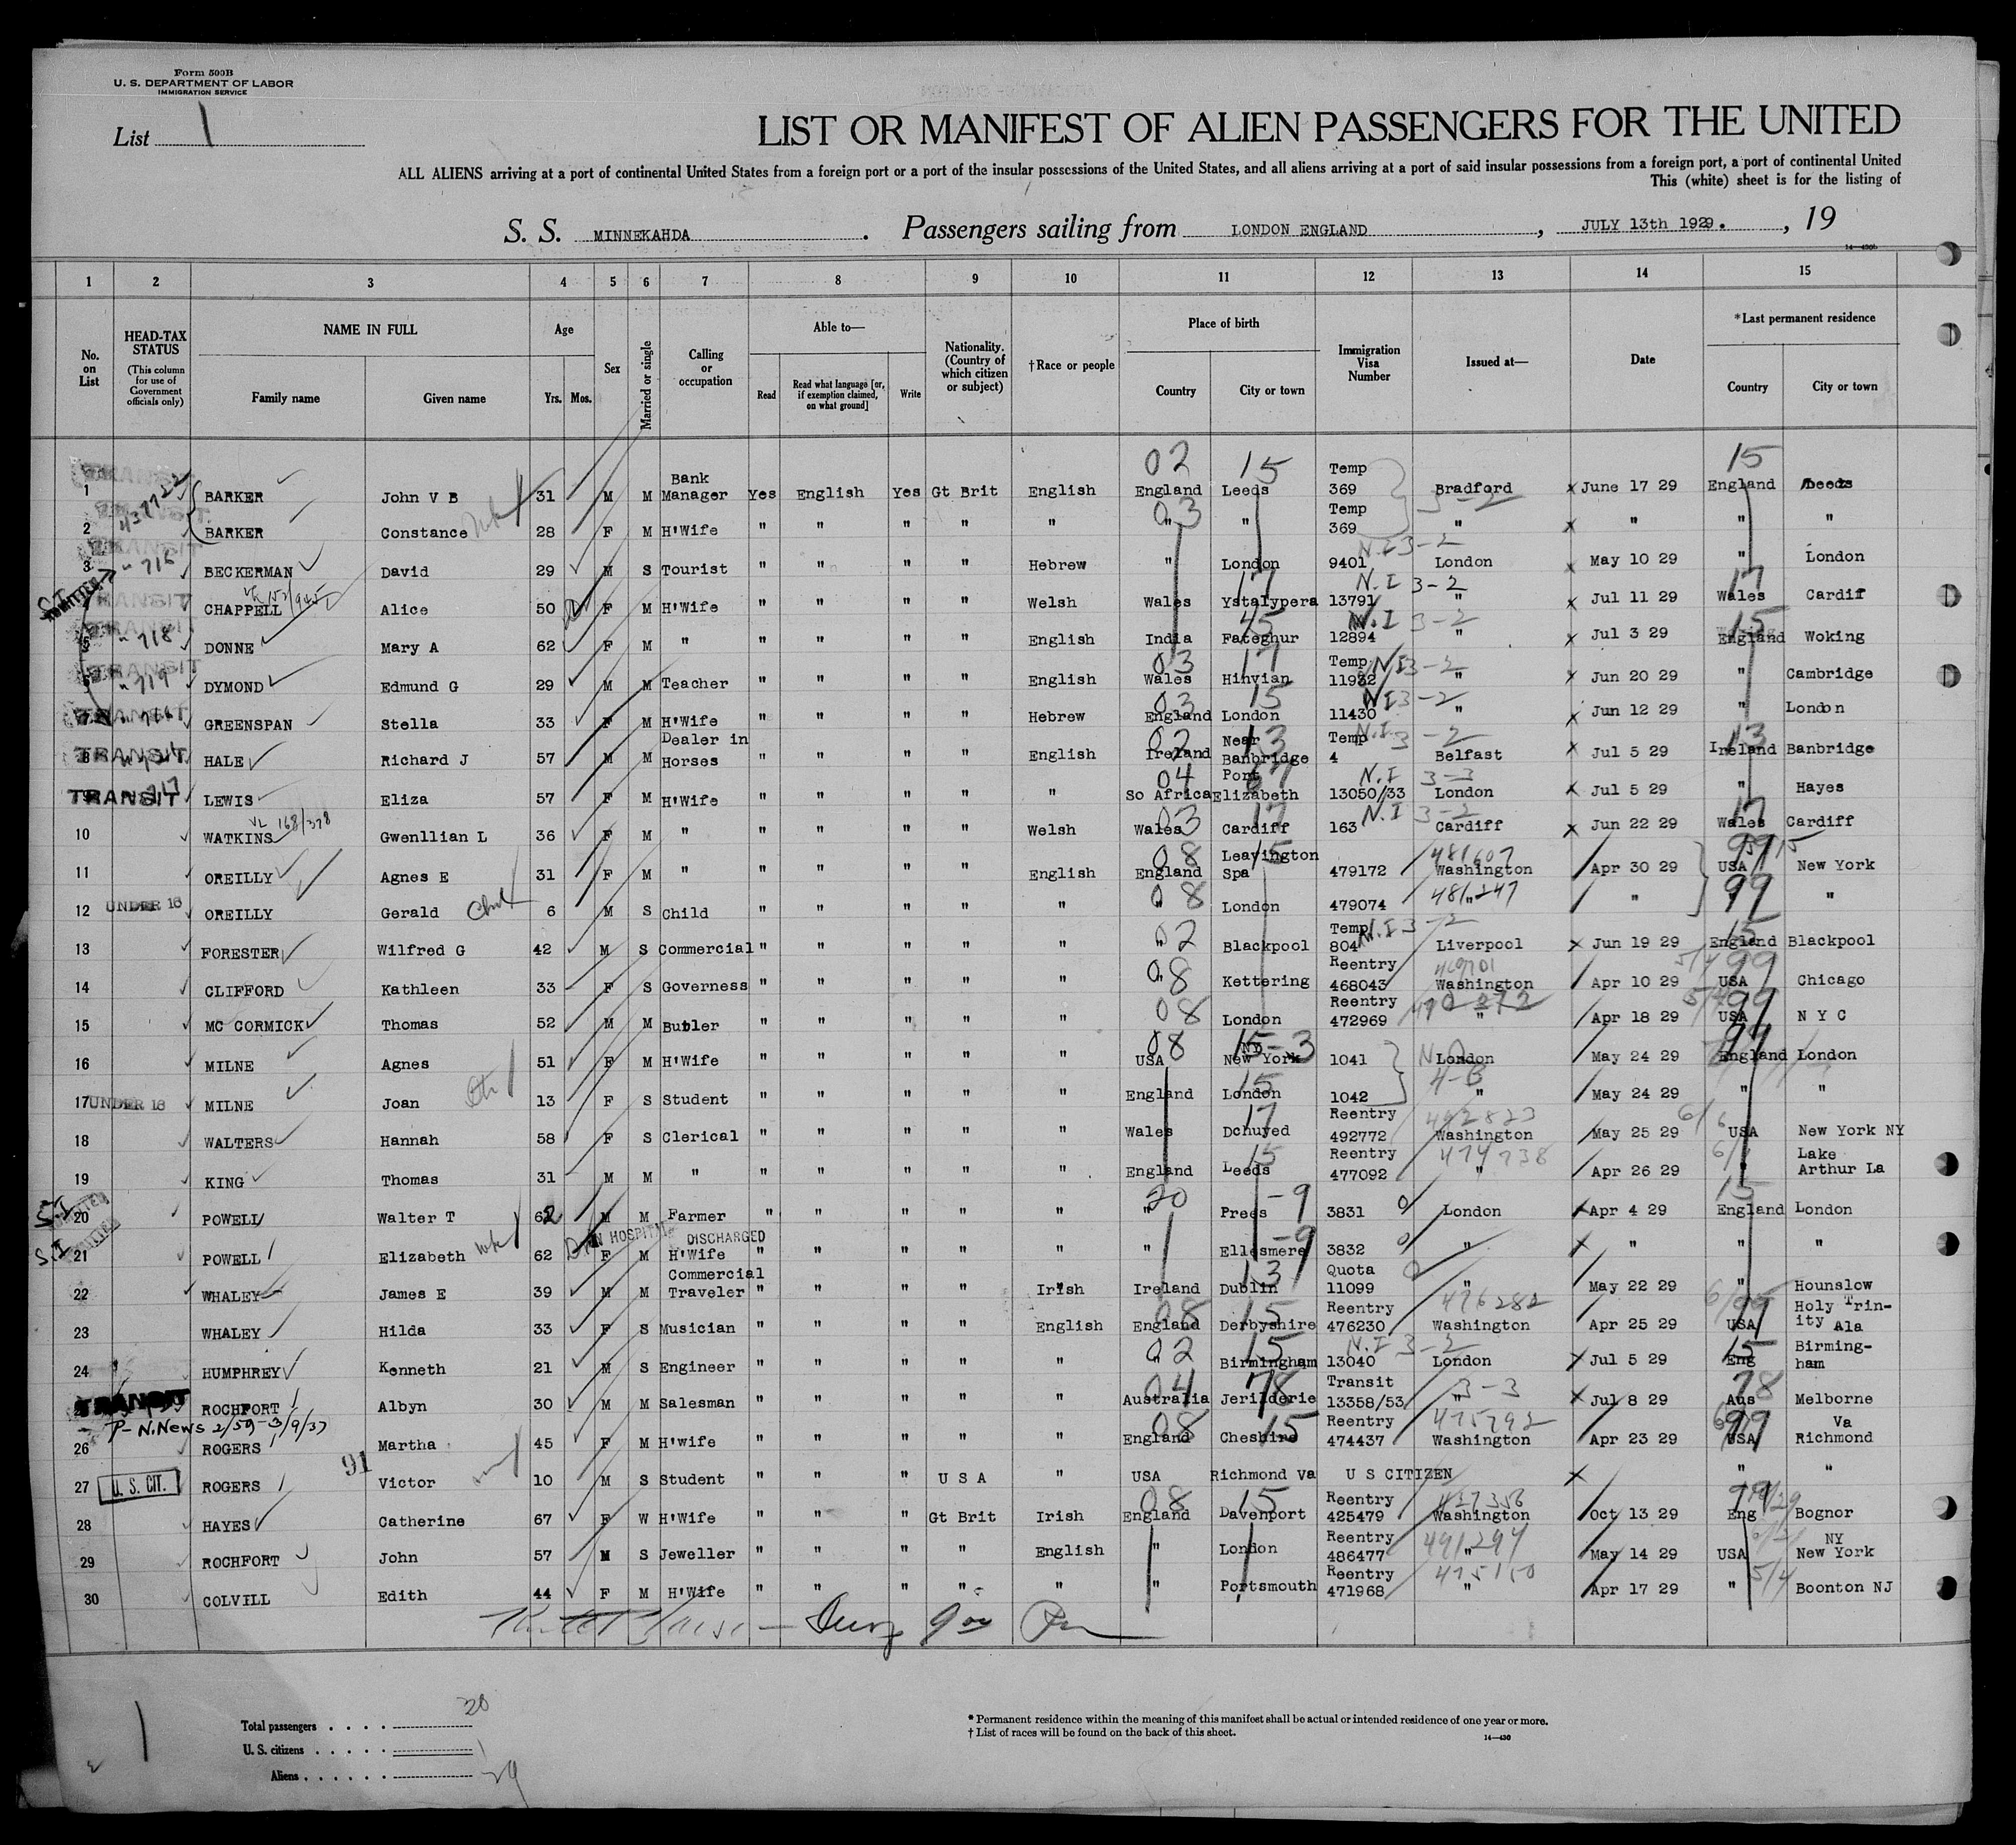 Form 500B
U. S. DEPARTMENT OF LABOR
IMMIGRATION SERVICE
List 1
LIST OR MANIFEST OF ALIEN PASSENGERS FOR THE UNITED
ALL ALIENS arriving at a port of continental United States from a foreign port or a port of the insular possessions of the United States, and all aliens arriving at a port of said insular possessions from a foreign port, a port of continental United
This (white) sheet is for the listing of
S. S. MINNEKAHDA. Passengers sailing from LONDON ENGLAND, JULY 13th 1929., 19
14—430b
1 2 3 4 5 6 7 8 9 10 11 12 13 14 15
No. on List
HEAD-TAX STATUS (This column for use of Government officials only)
NAME IN FULL Family name Given name
Age Yrs. Mos.
Sex
Married or single
Calling or occupation
Able to— Read Read what language [or, if exemption claimed, on what ground] Write
Nationality. (Country of which citizen or subject)
†Race or people
Place of birth Country City or town
Immigration Visa Number
Issued at—
Date
*Last permanent residence Country City or town
1 BARKER John V B 31 M M Bank Manager Yes English Yes Gt Brit English England Leeds Temp 369 Bradford June 17 29 England Leeds
2 BARKER Constance 28 F M H'Wife " " " " " " " Temp 369 " " " "
3 BECKERMAN David 29 M S Tourist " " " " Hebrew " London 9401 London May 10 29 " London
CHAPPELL Alice 50 F M H'Wife " " " " Welsh Wales Ystalypera 13791 " Jul 11 29 Wales Cardif
5 DONNE Mary A 62 F M " " " " " English India Fateghur 12894 " Jul 3 29 England Woking
6 DYMOND Edmund G 29 M M Teacher " " " " English Wales Hinvian Temp 11932 " Jun 20 29 " Cambridge
GREENSPAN Stella 33 F M H'Wife " " " " Hebrew England London 11430 " Jun 12 29 " London
TRANSIT 8 HALE Richard J 57 M M Dealer in Horses " " " " English Ireland Near Banbridge Temp 4 Belfast Jul 5 29 Ireland Banbridge
TRANSIT LEWIS Eliza 57 F M H'Wife " " " " " So Africa Port Elizabeth 13050/33 London Jul 5 29 " Hayes
10 WATKINS 168/378 Gwenllian L 36 F M " " " " " Welsh Wales Cardiff 163 Cardiff Jun 22 29 Wales Cardiff
11 OREILLY Agnes E 31 F M " " " " " English England Leavington Spa 479172 Washington Apr 30 29 USA New York
12 UNDER 16 OREILLY Gerald 6 M S Child " " " " " " London 479074 " " "
13 FORESTER Wilfred G 42 M S Commercial " " " " " " Blackpool Temp 804 Liverpool Jun 19 29 England Blackpool
14 CLIFFORD Kathleen 33 F S Governess " " " " " " Kettering Reentry 468043 Washington Apr 10 29 USA Chicago
15 MC CORMICK Thomas 52 M M Butler " " " " " London Reentry 472969 " Apr 18 29 USA N Y C
16 MILNE Agnes 51 F M H'Wife " " " " " USA NY New York 1041 London May 24 29 England London
17 UNDER 16 MILNE Joan 13 F S Student " " " " " England London 1042 " May 24 29 " "
18 WALTERS Hannah 58 F S Clerical " " " " " Wales Dchuyed Reentry 492772 Washington May 25 29 USA New York NY
19 KING Thomas 31 M M " " " " " " England Leeds Reentry 477092 " Apr 26 29 " Lake Arthur La
S.I 20 POWELL Walter T 62 M M Farmer " " " " " " Prees 3831 London Apr 4 29 England London
S.I 21 POWELL Elizabeth 62 IN HOSPITAL DISCHARGED F M H'Wife " " " " " " Ellesmere 3832 " " " "
22 WHALEY James E 39 M M Commercial Traveler " " " " Irish Ireland Dublin Quota 11099 " May 22 29 " Hounslow
23 WHALEY Hilda 33 F S Musician " " " " English England Derbyshire Reentry 476230 Washington 476282 Apr 25 29 USA Holy Trinity Ala
24 HUMPHREY Kenneth 21 M S Engineer " " " " " " Birmingham 13040 London Jul 5 29 Eng Birming-ham
TRANSIT ROCHFORT Albyn 30 M M Salesman " " " " " Australia Jerilderie Transit 13358/53 " Jul 8 29 Aus Melborne
P- N.News 2/59-3/9/37
26 ROGERS Martha 45 F M H'wife " " " " " England Cheshire Reentry 474437 Washington Apr 23 29 USA Va Richmond
27 U. S. CIT. ROGERS 91 Victor 10 M S Student " " " U S A " USA Richmond Va U S CITIZEN " "
28 HAYES Catherine 67 F W H'Wife " " " Gt Brit Irish England Davenport Reentry 425479 Washington Oct 13 29 Eng Bognor
29 ROCHFORT John 57 M S Jeweller " " " " English " London Reentry 486477 491294 " May 14 29 USA NY New York
30 COLVILL Edith 44 F M H'Wife " " " " " " Portsmouth Reentry 471968 475150 " Apr 17 29 " Boonton NJ
1
Total passengers . . . . 30
U. S. citizens . . . . . 1
Aliens . . . . . . 29
* Permanent residence within the meaning of this manifest shall be actual or intended residence of one year or more.
† List of races will be found on the back of this sheet.
14—430